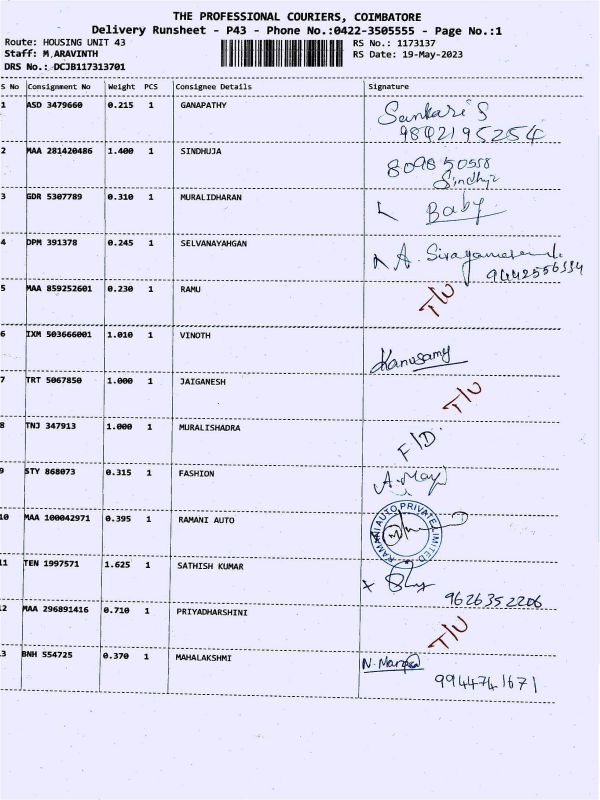 THE PROFESSIONAL COURIERS, COIMBATORE
Delivery Runsheet - P43 - Phone No.:0422-3505555 - Page No.:1
Route: HOUSING UNIT 43 RS No.: 1173137
Staff: M.ARAVINTH RS Date: 19-May-2023
DRS No.: DCJB117313701
S No Consignment No Weight PCS Consignee Details Signature
1 ASD 3479660 0.215 1 GANAPATHY Sankari S
9842195254
2 MAA 281420486 1.400 1 SINDHUJA 809850558
Sindhya
3 GDR 5307789 0.310 1 MURALIDHARAN Baby
4 DPM 391378 0.245 1 SELVANAYAHGAN A.
9442556334
5 MAA 859252601 0.230 1 RAMU T/U
6 IXM 503666001 1.010 1 VINOTH Kanusamy
7 TRT 5067850 1.000 1 JAIGANESH T/U
8 TNJ 347913 1.000 1 MURALISHADRA F/D
9 STY 868073 0.315 1 FASHION
10 MAA 100042971 0.395 1 RAMANI AUTO RAMANI AUTO PRIVATE LIMITED
11 TEN 1997571 1.625 1 SATHISH KUMAR
9626352206
12 MAA 296891416 0.710 1 PRIYADHARSHINI T/U
3 BNH 554725 0.370 1 MAHALAKSHMI N.
9944741671